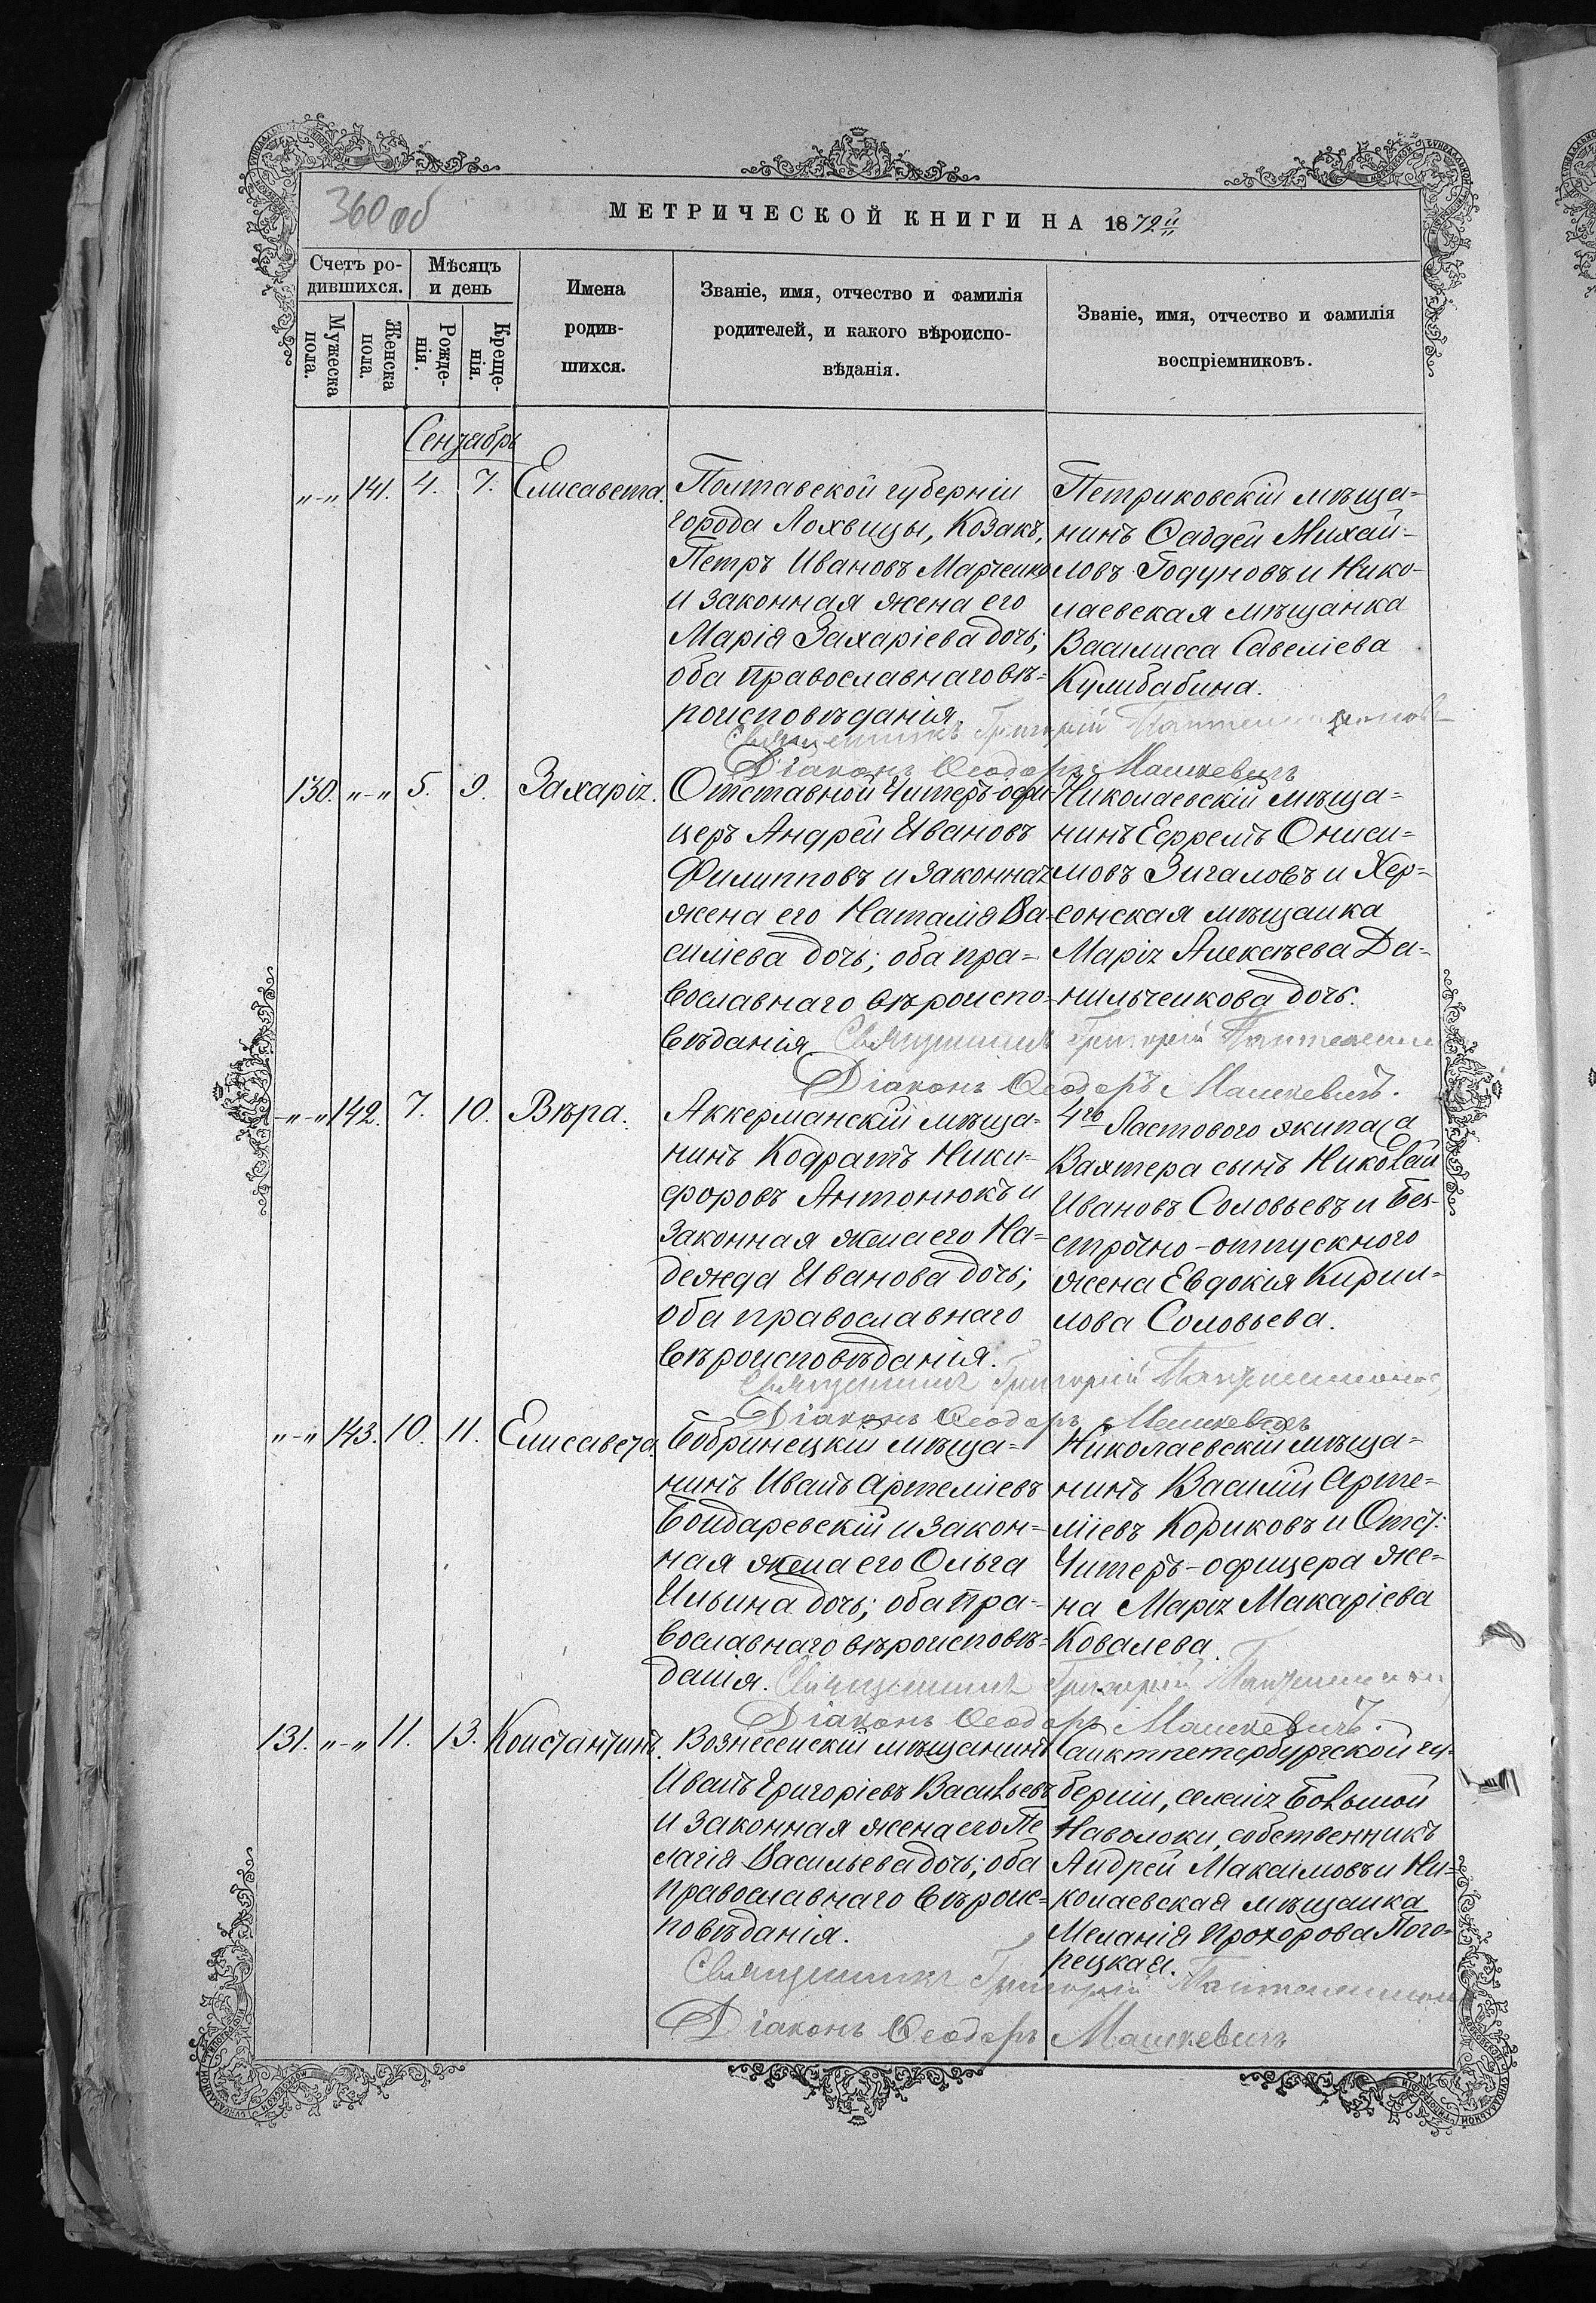 360 об
МЕТРИЧЕСКОЙ КНИГИ НА 1872й
Счетъ ро-
дившихся.
Мужеска
пола.
Женска
пола.
Мѣсяцъ
и день
Рожде-
нія.
Креще-
нія.
Имена
родив-
шихся.
Званіе, имя, отчество и фамилія
родителей, и какого вѣроиспо-
вѣданія.
Званіе, имя, отчество и фамилія
воспріемниковъ.
Сентябрь
„-„ 141. 4. 7. Елисавета.
Полтавской губерніи
города Лохвицы, Козакъ,
Петръ Ивановъ Марченко
и законная жена его
Марія Захаріева дочь;
оба православнаго вѣ-
роисповѣданія.
Петриковскій мѣща-
нинъ Фаддей Михай-
ловъ Годуновъ и Нико-
лаевская мѣщанка
Василисса Савеліева
Кулибабина.
Священникъ Григорій
Діаконъ Ѳеодоръ Машкевичъ
130. „-„ 5. 9. Захарія.
Отставной Унтеръ-офи-
церъ Андрей Ивановъ
Филипповъ и законная
жена его Наталія Ва-
силіева дочь; оба пра-
вославнаго вѣроиспо-
вѣданія
Николаевскій мѣща-
нинъ Ефремъ Ониси-
мовъ Зигаловъ и Хер-
сонская мѣщанка
Марія Алексѣева Да-
нильченкова дочь.
Священникъ Григорій
Діаконъ Ѳеодоръ Машкевичъ.
-„-„ 142. 7. 10. Вѣра.
Аккерманскій мѣща-
нинъ Кодратъ Ники-
форовъ Антонюкъ и
законная жена его На-
дежда Иванова дочь;
оба православнаго
вѣроисповѣданія.
4го Ластового экипажа
Вахтера сынъ Николай
Ивановъ Соловьевъ и Без-
строчно-отпускного
жена Евдокія Кирил-
лова Соловьева.
Священникъ Григорій
Діаконъ Ѳеодоръ Машкевичъ
„-„ 143. 10. 11. Елисавета.
Бобринецкій мѣща-
нинъ Иванъ Артеміевъ
Бондаревскій и закон-
ная жена его Ольга
Ильина дочь; оба пра-
вославнаго вѣроисповѣ-
данія.
Николаевскій мѣща-
нинъ Василій Арте-
міевъ Кориковъ и Отст:
Унтеръ-офицера же-
на Марія Макаріева
Ковалева.
Священникъ Григорій
Діаконъ Ѳеодоръ Машкевичъ.
131. „-„ 11. 13. Константинъ.
Вознесенскій мѣщанинъ
Иванъ Григоріевъ Васильевъ
и законная жена его Пе
лагія Васильева дочь; оба
православнаго вѣроис-
повѣданія.
Санктпетербургской гу-
берніи, селенія Большой
Наволоки, собственникъ
Андрей Максимовъ и Ни-
колаевская мѣщанка
Меланія Прохорова Пого-
рецкая.
Священникъ Григорій
Діаконъ Ѳеодоръ Машкевичъ